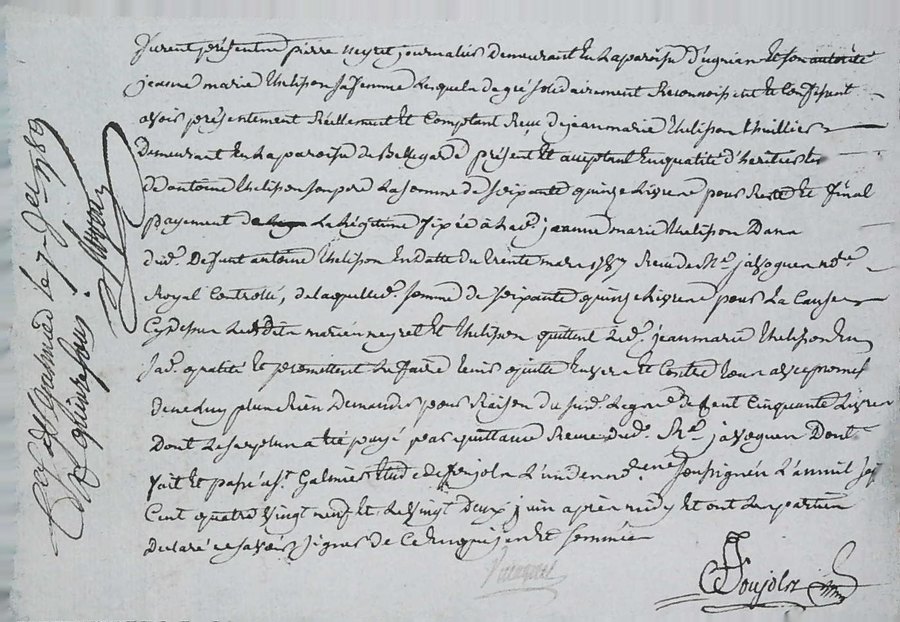 furent présent pierre neyret journalier demeurant en la paroisse d'ugnian et son autorité
jeanne marie thelisson sa femme lesquels de gré solidairement reconnoissent et confessent
avoir présentement réellement et comptant reçu de jean marie thelisson thuillier
demeurant en la paroisse de Bellegarde présent et acceptant en qualité d'heritier
d'antoine thelisson son pere la somme de soixante quinze livres pour reste et final
payement de la légitime fixée à lad. jeanne marie thelisson dans
dud. defunt antoine thelisson en datte du trente mars 1787 reçu de Me. javoguer nore.
Royal Controllé, de laquelle d. somme de soixante quinze livres pour la cause
cy dessus lesdits mariés neyret et thelisson quittent led. jean marie thelisson en
sad. qualité et promettent le faire tenir quitte envers et contre tous avec promesse
de ne luy plus rien demander pour raison du sud. de cent cinquante livres
dont le surplus a été payé par quittance reçue dud. Me. javoguer Dont
fait et passé à St. Galmier Etude de Soujols L'un des nores. soussignés L'an mil sept
Cent quatre vingt neuf et le vingt deux juin après midy et ont les parties
déclaré ne savoir signer de ce enquises et sommées
Soujols
St Galmier le 7 1789
Reçu quinze sous